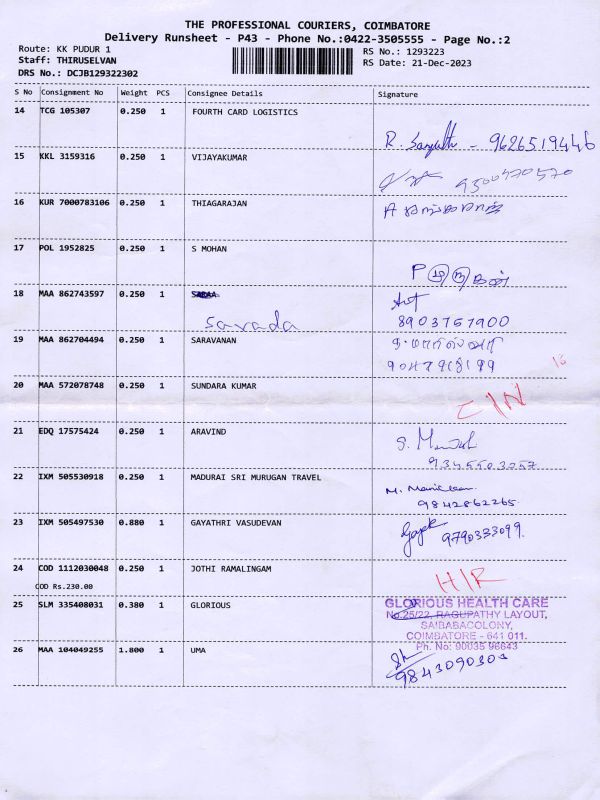 THE PROFESSIONAL COURIERS, COIMBATORE
Delivery Runsheet - P43 - Phone No.:0422-3505555 - Page No.:2
Route: KK PUDUR 1
Staff: THIRUSELVAN
DRS No.: DCJB129322302
RS No.: 1293223
RS Date: 21-Dec-2023
S No Consignment No Weight PCS Consignee Details Signature
14 TCG 105307 0.250 1 FOURTH CARD LOGISTICS
R. - 9626519446
15 KKL 3159316 0.250 1 VIJAYAKUMAR
9500470570
16 KUR 7000783106 0.250 1 THIAGARAJAN
17 POL 1952825 0.250 1 S MOHAN
18 MAA 862743597 0.250 1
Savada
8903757900
19 MAA 862704494 0.250 1 SARAVANAN
20 MAA 572078748 0.250 1 SUNDARA KUMAR
21 EDQ 17575424 0.250 1 ARAVIND
22 IXM 505530918 0.250 1 MADURAI SRI MURUGAN TRAVEL
9842862265
23 IXM 505497530 0.880 1 GAYATHRI VASUDEVAN
9790333099
24 COD 1112030048 0.250 1 JOTHI RAMALINGAM
COD Rs.230.00
25 SLM 335408031 0.380 1 GLORIOUS
GLORIOUS HEALTH CARE
No.25/22, RAGUPATHY LAYOUT,
SAIBABACOLONY,
COIMBATORE - 641 011.
Ph. No: 90035 96643
26 MAA 104049255 1.800 1 UMA